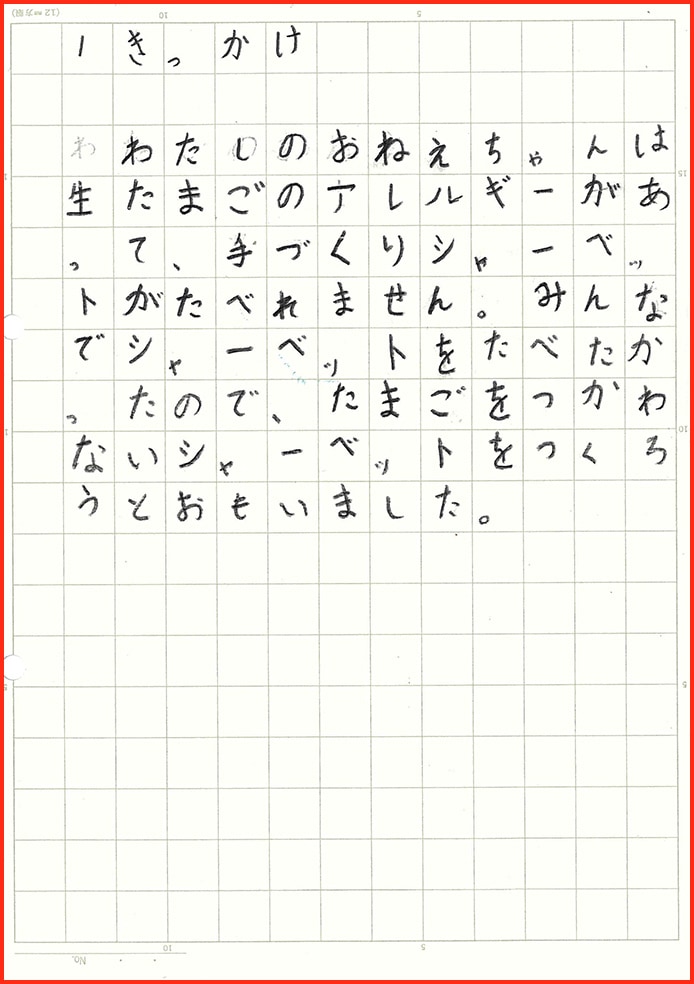 1 きっかけ
わたしのおねえちゃんは
生たまごのアレルギーがあ
って、手づくりシャーベッ
トがたべれません。みんな
でシャーベットをたべたか
ったので、たまごをつかわ
ないシャーベットをつくろ
うとおもいました。
(12mm方眼)
10
5
15
10
5
5
10
No.